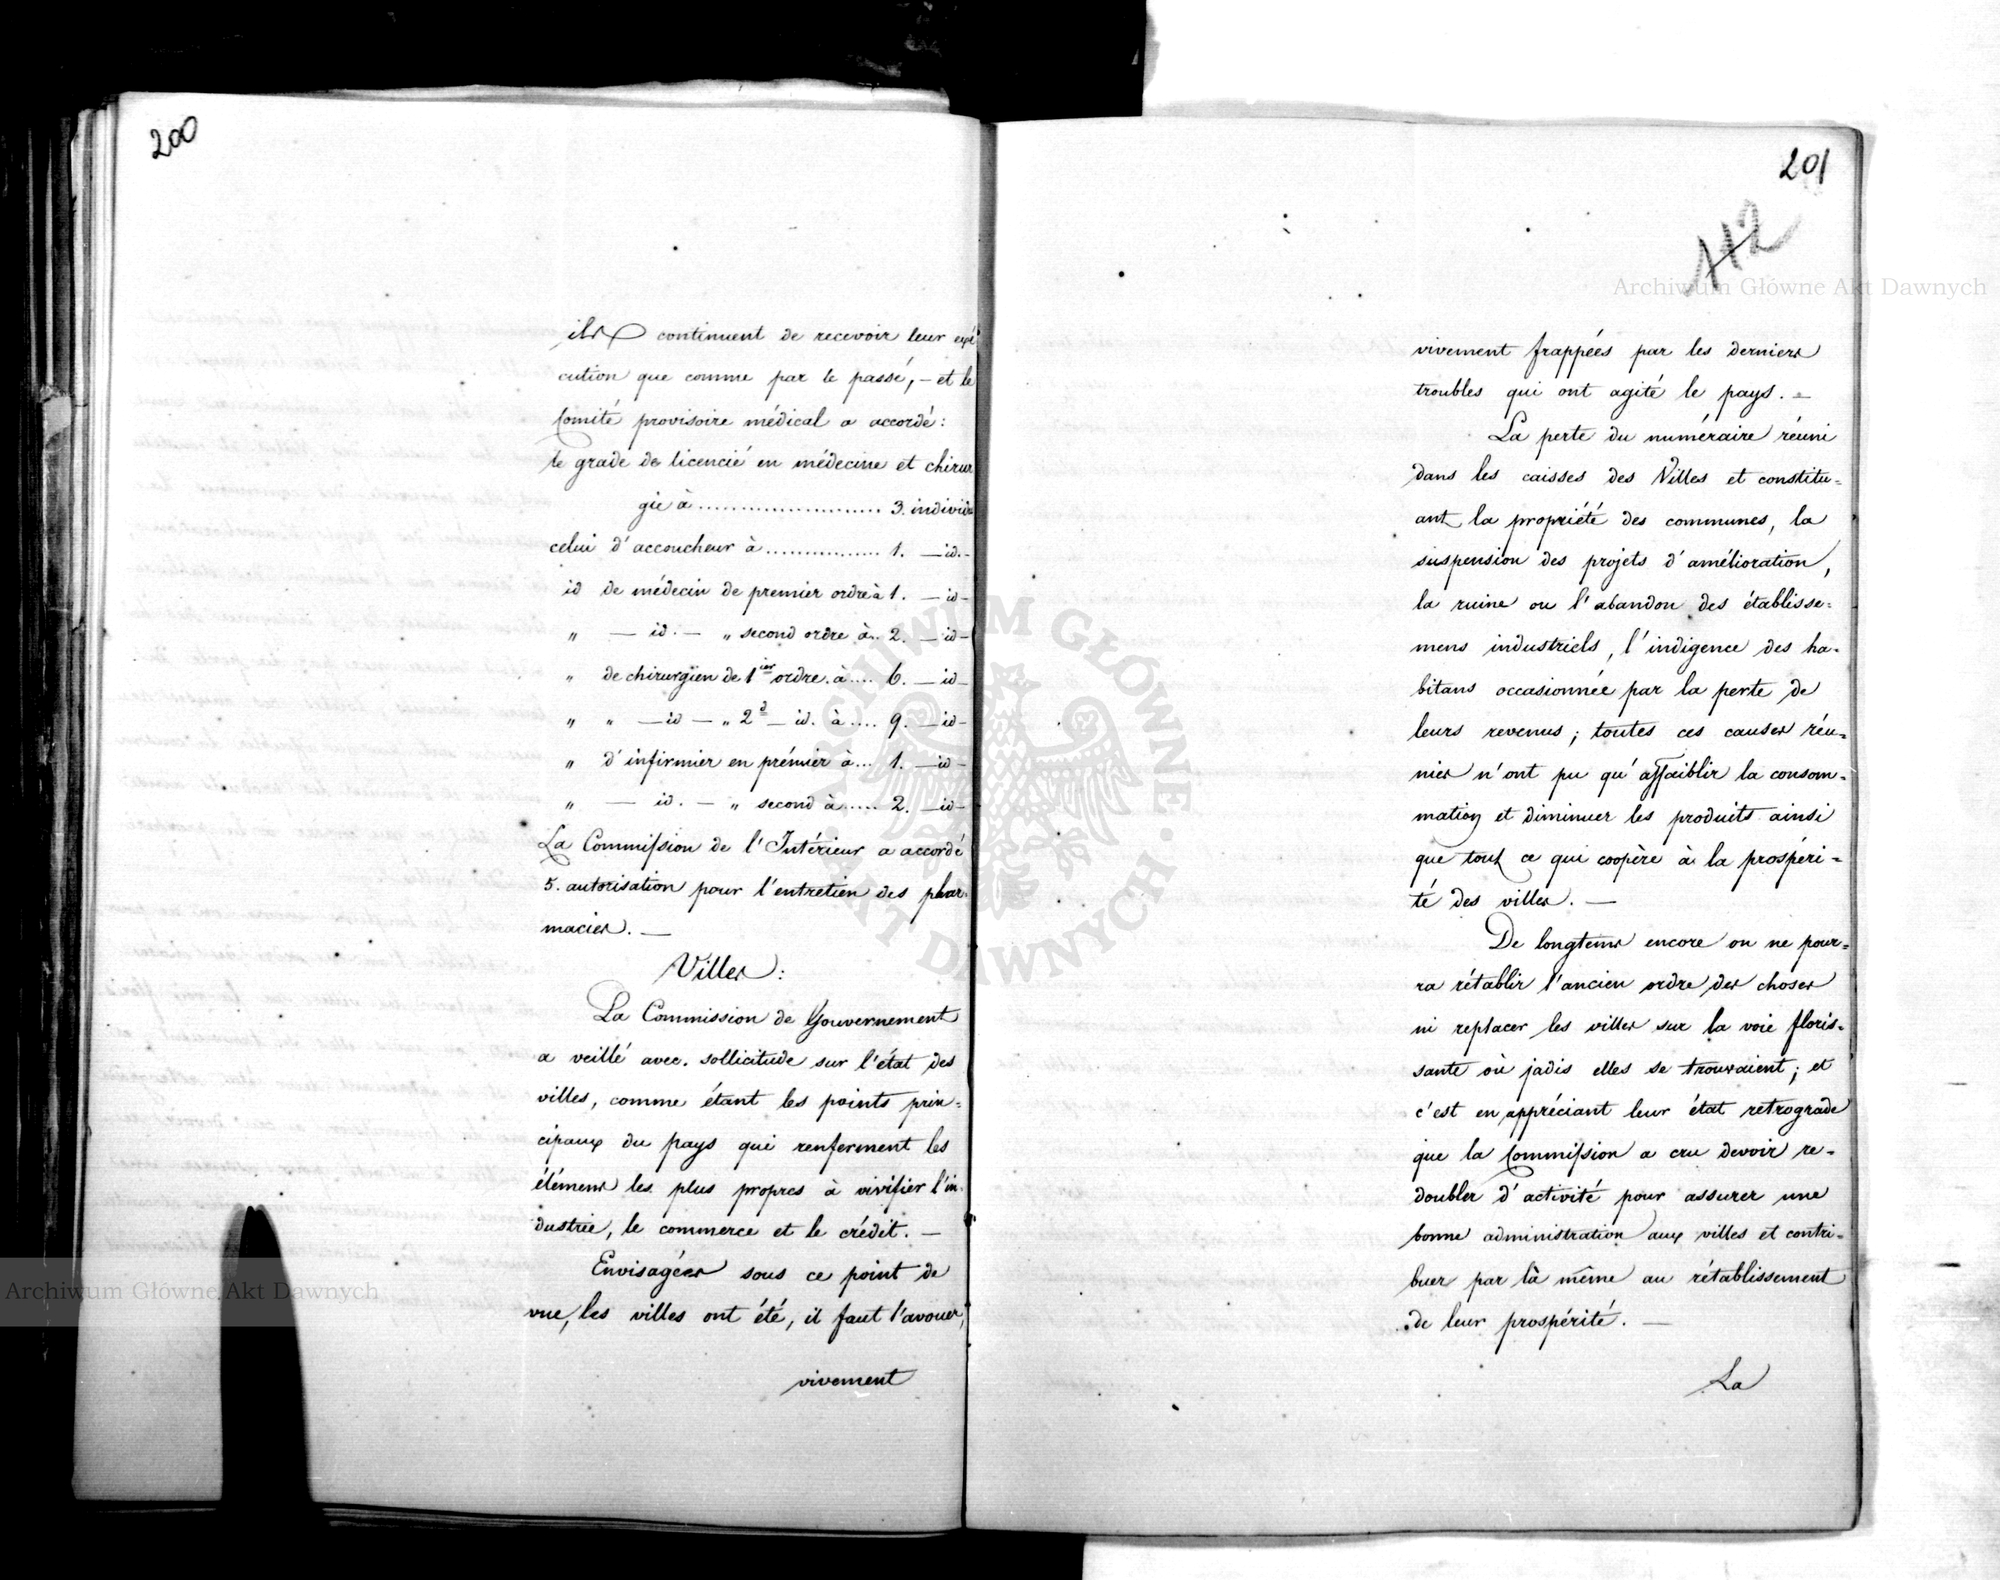 200
ils continuent de recevoir leur exé
cution que comme par le passé, – et le
Comité provisoire médical a accordé:
le grade de licencié en médecine et chirur
gie à ........................ 3. individu
celui d'accoucheur à ................ 1. — id. -
id de médecin de premier ordre à 1. — id -
" — id. — " second ordre à .. 2. — id -
" de chirurgien de 1ier ordre. à .... 6. — id -
" " — id — " 2d — id. à .... 9. — id -
" d'infirmier en prémier à ... 1. — id -
" — id. — " second à ..... 2. — id -
La Commission de l'Intérieur a accordé
5. autorisation pour l'entretien des phar-
macies. —
Villes:
La Commission de Gouvernement
a veillé avec. sollicitude sur l'état des
villes, comme étant les points prin=
cipaux du pays qui renferment les
élémens les plus propres à vivifier l'in-
dustrie, le commerce et le crédit. —
Envisagées sous ce point de
vue, les villes ont été, il faut l'avouer,
vivement
201
112
vivement frappées par les derniers
troubles qui ont agité le pays. =
La perte du numéraire réuni
dans les caisses des Villes et constitu=
ant la propriété des communes, la
suspension des projets d'amélioration,
la ruine ou l'abandon des établisse=
mens industriels, l'indigence des ha-
bitans occasionnée par la perte de
leurs revenus; toutes ces causes réu=
nies n'ont pu qu'affaiblir la consom=
mation et diminuer les produits ainsi
que tout ce qui coopère à la prospéri=
té des villes. —
De longtems encore on ne pour=
ra rétablir l'ancien ordre des choses
ni replacer les villes sur la voie floris=
sante où jadis elles se trouvaient; et
c'est en appréciant leur état retrograde
que la Commission a cru devoir re-
doubler d'activité pour assurer une
bonne administration aux villes et contri=
buer par là même au rétablissement
de leur prospérité. —
La
Archiwum Główne Akt Dawnych
Archiwum Główne Akt Dawnych
ARCHIWUM GŁÓWNE AKT DAWNYCH